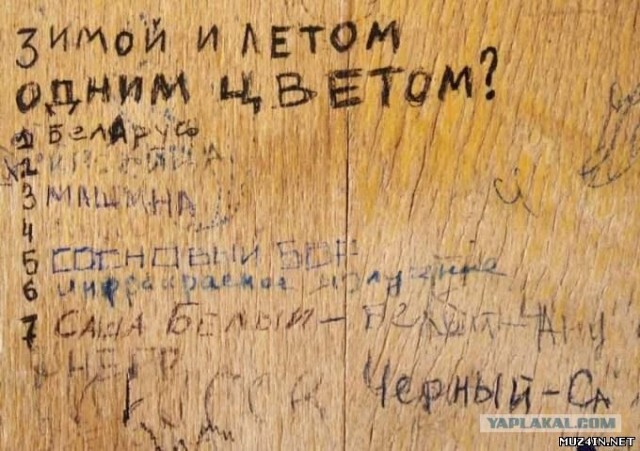 ЗИМОЙ И ЛЕТОМ
ОДНИМ ЦВЕТОМ?
1 БЕЛАРУС
2
3 МАШИНА
4
5 СОСНОВЫЙ БОР
6 инфракрасное излучение
7 САША БЕЛЫЙ-
НЕГР
ЧЕРНЫЙ-СА
YAPLAKAL.COM
MUZ4IN.NET